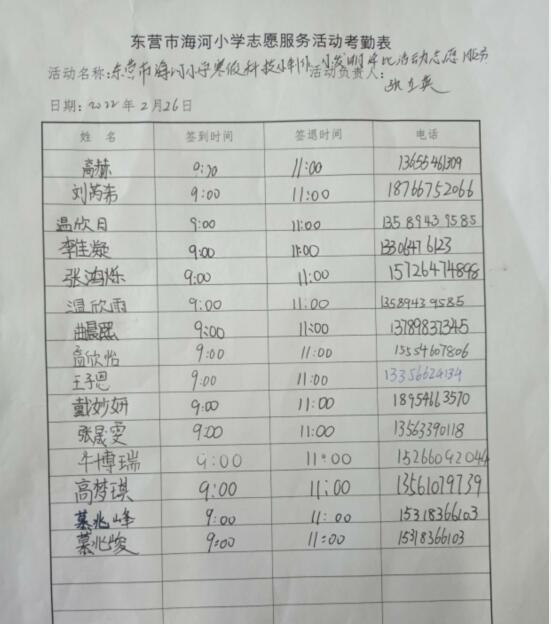 东营市海河小学志愿服务活动考勤表
活动名称:东营市海河小学寒假科技小制作、小发明评比活动志愿服务 活动负责人:
张立英
日期:2022年2月26日
姓 名 签到时间 签退时间 电话
高赫 9:00 11:00 13655461309
刘芮希 9:00 11:00 18766752066
温欣日 9:00 11:00 13589439585
李佳凝 9:00 11:00 13306476123
张鸿烁 9:00 11:00 15726474898
温欣雨 9:00 11:00 13589439585
曲晨熙 9:00 11:00 13789837345
高欣怡 9:00 11:00 15554607806
王子恩 9:00 11:00
戴妙妍 9:00 11:00 18954663570
张晟雯 9:00 11:00 13563390118
牛博瑞 9:00 11:00 15266092044
高梦琪 9:00 11:00 13561079739
慕兆峰 9:00 11:00 15318366103
慕兆峻 9:00 11:00 15318366103